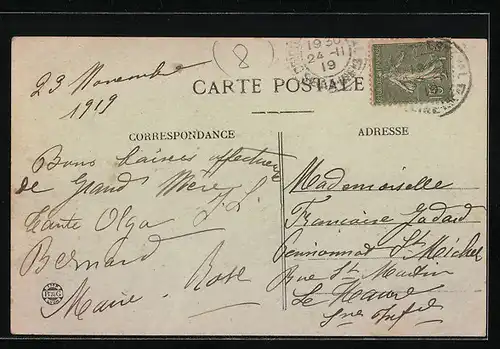 23 Novembre
1919
8
1930
24-11
19
CARTE POSTALE
CORRESPONDANCE
ADRESSE
Bons baisers affectueux
de Grand Mère
Tante Olga
Bernard
Marie-Rose
Mademoiselle
Françoise Godard
Pensionnat St Michel
Rue St Martin
Le Havre
Sne Infre